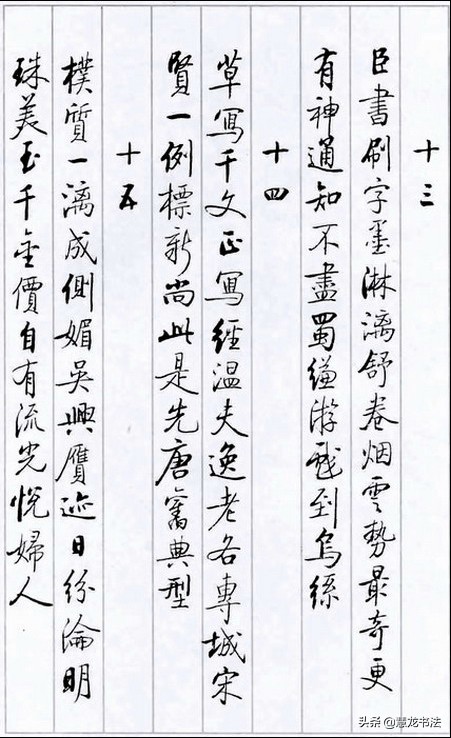 十三
臣書刷字墨淋漓舒卷烟雲勢最奇更
有神通知不盡蜀縑游戲到烏絲
十四
草寫千文正寫經温夫逸老各專城宋
賢一例標新尚此是先唐舊典型
十五
樸質一漓成側媚吳興贋迹日紛淪明
珠美玉千金價自有流光悅婦人
头条 @慧龙书法